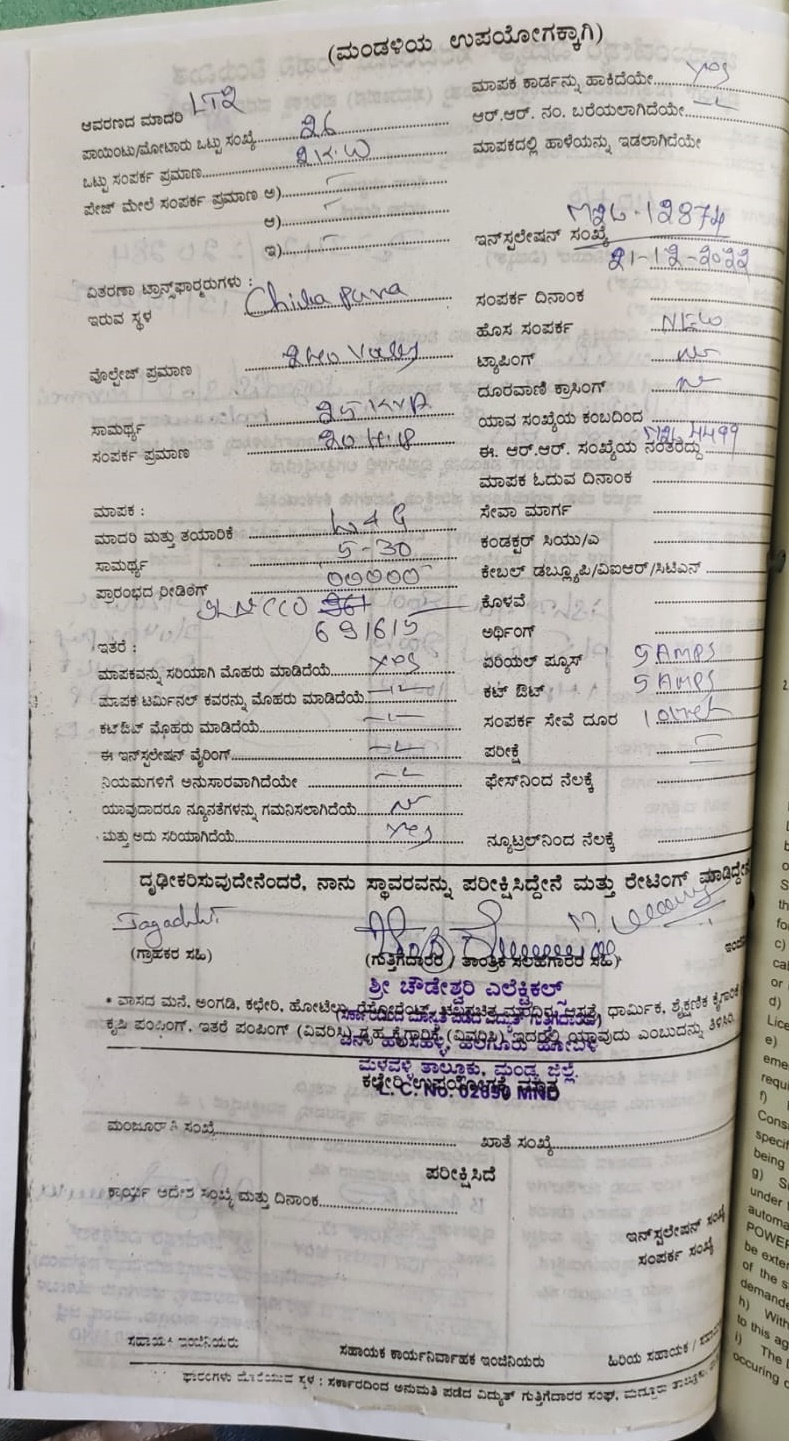 (ಮಂಡಳಿಯ ಉಪಯೋಗಕ್ಕಾಗಿ)
ಆವರಣದ ಮಾದರಿ LT2
ಪಾಯಿಂಟು/ಮೋಟಾರು ಒಟ್ಟು ಸಂಖ್ಯೆ 26
ಒಟ್ಟು ಸಂಪರ್ಕ ಪ್ರಮಾಣ 2K.W
ಪೇಜ್ ಮೇಲೆ ಸಂಪರ್ಕ ಪ್ರಮಾಣ ಅ)
ಆ)
ಇ)
ವಿತರಣಾ ಟ್ರಾನ್ಸ್‌ಫಾರ್‍ಮರುಗಳು :
ಇರುವ ಸ್ಥಳ
ವೊಲ್ಟೇಜ್ ಪ್ರಮಾಣ
ಸಾಮರ್ಥ್ಯ 25 KVA
ಸಂಪರ್ಕ ಪ್ರಮಾಣ 20 H.P
ಮಾಪಕ :
ಮಾದರಿ ಮತ್ತು ತಯಾರಿಕೆ L&G
ಸಾಮರ್ಥ್ಯ 5-30
ಪ್ರಾರಂಭದ ರೀಡಿಂಗ್ 00000
691615
ಇತರೆ :
ಮಾಪಕವನ್ನು ಸರಿಯಾಗಿ ಮೊಹರು ಮಾಡಿದೆಯೆ yes
ಮಾಪಕ ಟರ್ಮಿನಲ್ ಕವರನ್ನು ಮೊಹರು ಮಾಡಿದೆಯೆ
ಕಟ್‌ಔಟ್ ಮೊಹರು ಮಾಡಿದೆಯೆ
ಈ ಇನ್‌ಸ್ಟಲೇಷನ್ ವೈರಿಂಗ್
ನಿಯಮಗಳಿಗೆ ಅನುಸಾರವಾಗಿದೆಯೇ
ಯಾವುದಾದರೂ ನ್ಯೂನತೆಗಳನ್ನು ಗಮನಿಸಲಾಗಿದೆಯೆ No
ಮತ್ತು ಅದು ಸರಿಯಾಗಿದೆಯೆ yes
ಮಾಪಕ ಕಾರ್ಡನ್ನು ಹಾಕಿದೆಯೇ yes
ಆರ್.ಆರ್. ನಂ. ಬರೆಯಲಾಗಿದೆಯೇ
ಮಾಪಕದಲ್ಲಿ ಹಾಳೆಯನ್ನು ಇಡಲಾಗಿದೆಯೇ
ಇನ್‌ಸ್ಪಲೇಷನ್ ಸಂಖ್ಯೆ M2L.12874
21-12-2022
ಸಂಪರ್ಕ ದಿನಾಂಕ
ಹೊಸ ಸಂಪರ್ಕ NEW
ಟ್ಯಾಪಿಂಗ್ No
ದೂರವಾಣಿ ಕ್ರಾಸಿಂಗ್ No
ಯಾವ ಸಂಖ್ಯೆಯ ಕಂಬದಿಂದ
ಈ. ಆರ್.ಆರ್. ಸಂಖ್ಯೆಯ ನಂತರದ್ದು M2L 4499
ಮಾಪಕ ಓದುವ ದಿನಾಂಕ
ಸೇವಾ ಮಾರ್ಗ
ಕಂಡಕ್ಟರ್ ಸಿಯು/ಎ
ಕೇಬಲ್ ಡಬ್ಲ್ಯೂಪಿ/ವಿಐಆರ್/ಸಿಟಿಎನ್
ಕೊಳವೆ
ಅರ್ಥಿಂಗ್
ಏರಿಯಲ್ ಫ್ಯೂಸ್ 5 AMPS
ಕಟ್ ಔಟ್ 5 AMPS
ಸಂಪರ್ಕ ಸೇವೆ ದೂರ
ಪರೀಕ್ಷೆ
ಫೇಸ್‌ನಿಂದ ನೆಲಕ್ಕೆ
ನ್ಯೂಟ್ರಲ್‌ನಿಂದ ನೆಲಕ್ಕೆ
ದೃಢೀಕರಿಸುವುದೇನೆಂದರೆ, ನಾನು ಸ್ಥಾವರವನ್ನು ಪರೀಕ್ಷಿಸಿದ್ದೇನೆ ಮತ್ತು ರೇಟಿಂಗ್ ಮಾಡಿದ್ದೇನೆ
(ಗ್ರಾಹಕರ ಸಹಿ)
(ಗುತ್ತಿಗೆದಾರರ / ತಾಂತ್ರಿಕ ಸಲಹಗಾರರ ಸಹಿ)
ಶ್ರೀ ಚೌಡೇಶ್ವರಿ ಎಲೆಕ್ಟ್ರಿಕಲ್ಸ್
• ವಾಸದ ಮನೆ, ಅಂಗಡಿ, ಕಛೇರಿ, ಹೋಟೆಲು, ಆಸ್ಪತ್ರೆ, ಧಾರ್ಮಿಕ, ಶೈಕ್ಷಣಿಕ
ಕೃಷಿ ಪಂಪಿಂಗ್, ಇತರೆ ಪಂಪಿಂಗ್ (ವಿವರಿಸಿ) ಗೃಹ ಕೈಗಾರಿಕೆ (ವಿವರಿಸಿ) ಇದರಲ್ಲಿ ಯಾವುದು ಎಂಬುದನ್ನು ತಿಳಿಸಿರಿ.
ಮಳವಳ್ಳಿ ತಾಲ್ಲೂಕು, ಮಂಡ್ಯ ಜಿಲ್ಲೆ.
ಕಛೇರಿ ಉಪಯೋಗಕ್ಕೆ ಮಾತ್ರ
L. C. No. 02890 MND
ಮಂಜೂರಾತಿ ಸಂಖ್ಯೆ
ಖಾತೆ ಸಂಖ್ಯೆ
ಪರೀಕ್ಷಿಸಿದೆ
ಕಾರ್ಯ ಆದೇಶ ಸಂಖ್ಯೆ ಮತ್ತು ದಿನಾಂಕ
ಇನ್‌ಸ್ಪಲೇಷನ್ ಸಂಖ್ಯೆ
ಸಂಪರ್ಕ ಸಂಖ್ಯೆ
ಸಹಾಯಕ ಇಂಜಿನಿಯರು
ಸಹಾಯಕ ಕಾರ್ಯನಿರ್ವಾಹಕ ಇಂಜಿನಿಯರು
ಹಿರಿಯ ಸಹಾಯಕ /
ಫಾರಂಗಳು ದೊರೆಯುವ ಸ್ಥಳ : ಸರ್ಕಾರದಿಂದ ಅನುಮತಿ ಪಡೆದ ವಿದ್ಯುತ್ ಗುತ್ತಿಗೆದಾರರ ಸಂಘ,